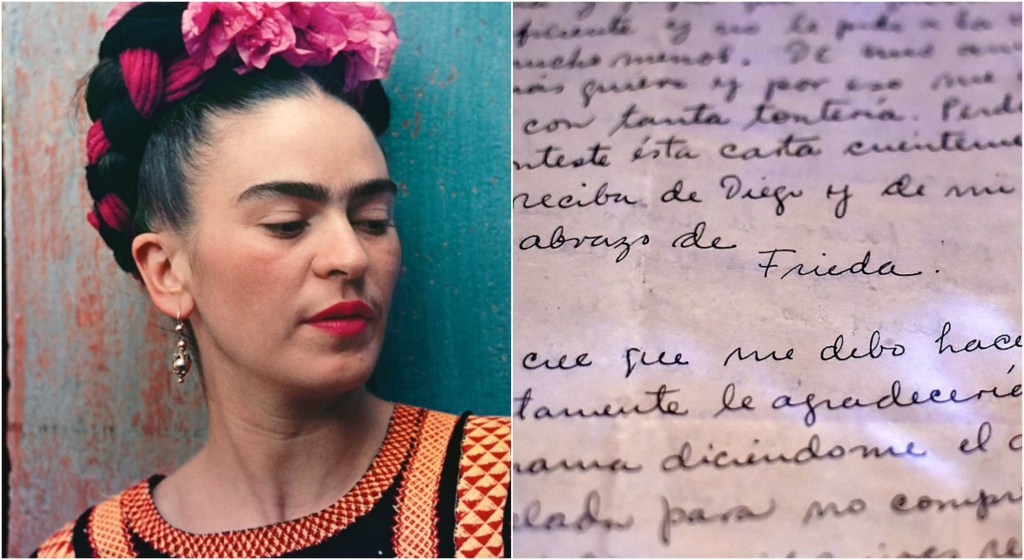 ficiente y no le pide a la
mucho menos. De mis am
más quiero y por eso me
con tanta tontería. Perdo
nteste ésta carta cuenteme
reciba de Diego y de mi
abrazo de
Frieda.
cree que me debo hace
tamente le agradecerí
mama diciendome el
lada para no compr